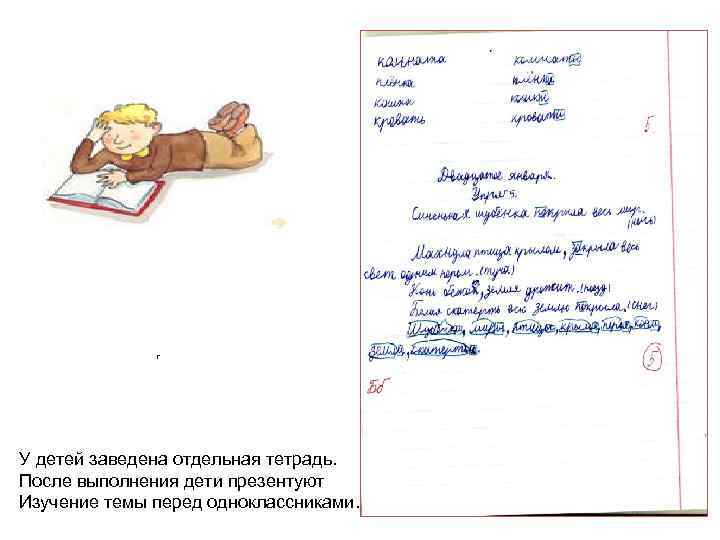 комната комнаты
плёнка плёнки
кошка кошки
кровать кровати
5
Двадцатое января.
Упр. 5.
Синенькая шубёнка покрыла весь мир.
(ночь)
Махнула птица крылом, закрыла весь
свет одним пером. (туча)
Конь бежит, земля дрожит. (поезд)
Белая скатерть всю землю покрыла. (снег)
Шубёнка, мир, птица, крылом, пером, конь,
земля, скатерть.
5
г
У детей заведена отдельная тетрадь.
После выполнения дети презентуют
Изучение темы перед одноклассниками.